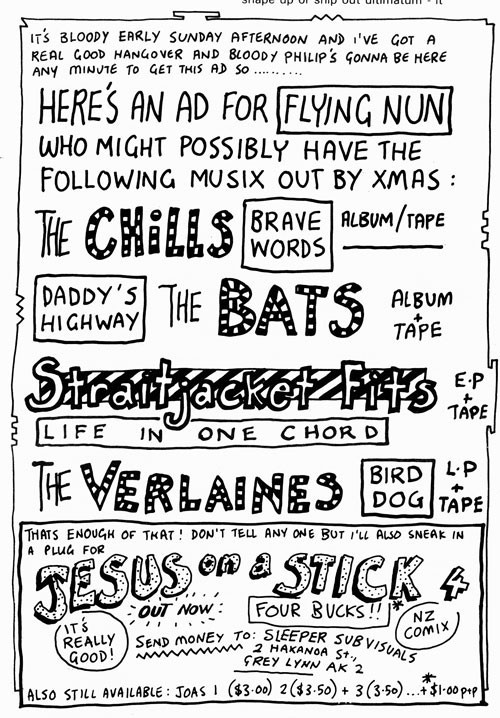 shape up or ship out ultimatum - it
IT'S BLOODY EARLY SUNDAY AFTERNOON AND I'VE GOT A
REAL GOOD HANGOVER AND BLOODY PHILIP'S GONNA BE HERE
ANY MINUTE TO GET THIS AD SO ..........
HERE'S AN AD FOR FLYING NUN
WHO MIGHT POSSIBLY HAVE THE
FOLLOWING MUSIX OUT BY XMAS :
THE CHiLLS BRAVE WORDS ALBUM/TAPE
DADDY'S HIGHWAY THE BATS ALBUM + TAPE
Straitjacket Fits E.P + TAPE
LIFE IN ONE CHORD
THE VERLAINES BIRD DOG L.P + TAPE
THATS ENOUGH OF THAT! DON'T TELL ANY ONE BUT I'LL ALSO SNEAK IN
A PLUG FOR
JESUS on a STICK 4
OUT NOW:
FOUR BUCKS!! *
NZ COMIX
IT'S REALLY GOOD!
SEND MONEY TO: SLEEPER SUBVISUALS
2 HAKANOA ST.,
GREY LYNN AK 2
ALSO STILL AVAILABLE: JOAS 1 ($3.00) 2($3.50) + 3(3.50)...+ *$1.00 p+p